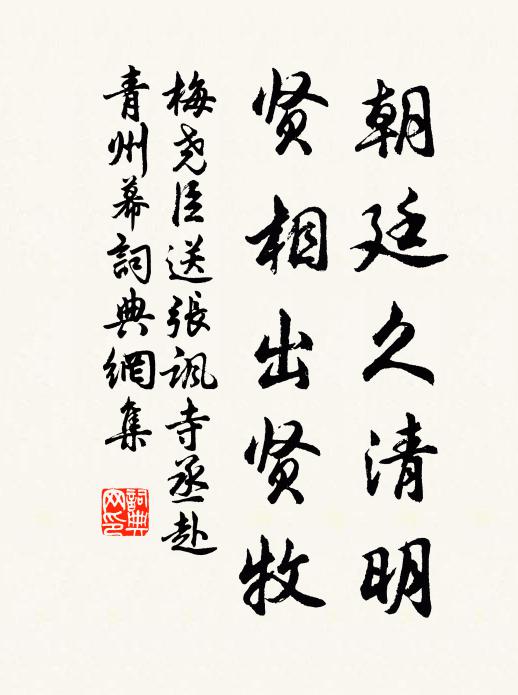 朝廷久清明
贤相出贤牧
梅尧臣送張諷寺丞赴
青州幕詞典網集
詞典
网印